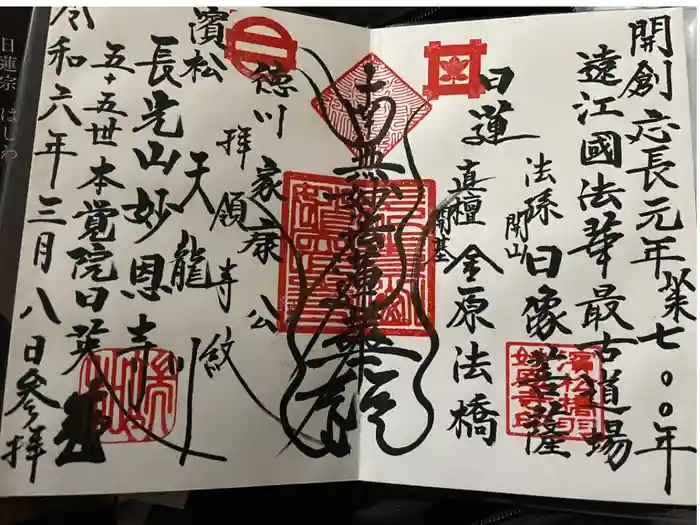 開創応長元年 業七〇〇年
遠江國法華最古道場
法孫 日像菩薩
開山
日蓮
直檀 金原法橋
開基
南無妙法蓮華経
徳川家康公
拝領寺紋
濱松 天龍川
長光山妙恩寺
五十五世 本覚院日英
令和六年三月八日参拝
日蓮宗 はしわ